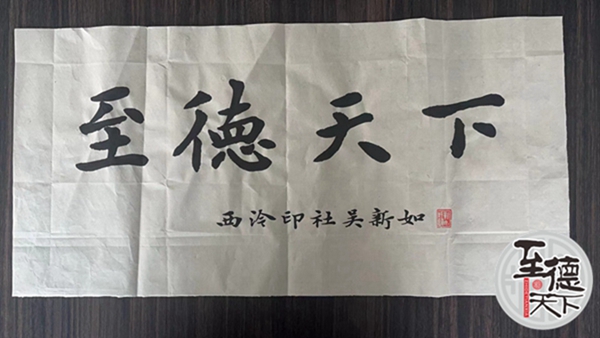 至德天下
西泠印社吴新如
至德
天下